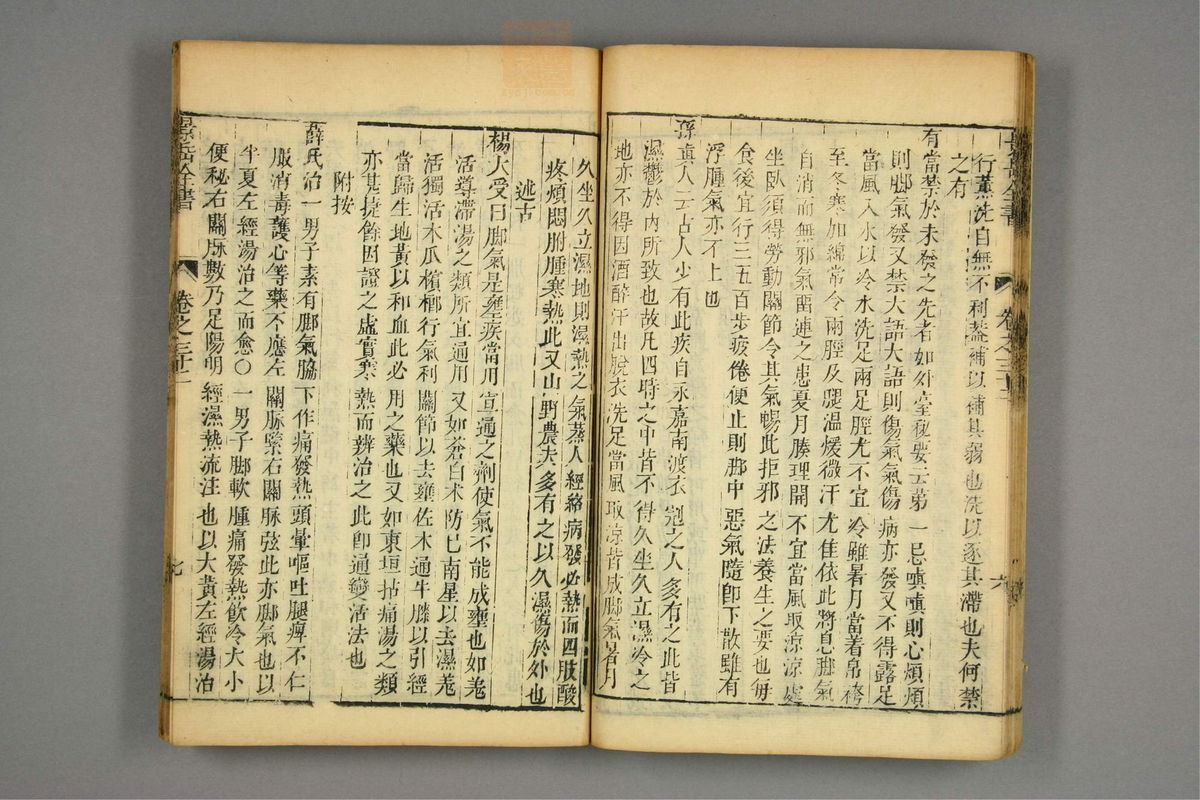 行薰洗自無不利蓋補以補其弱也洗以逐其滯也夫何禁
之有
有當禁於未發之先者如外臺秘要云第一忌嗔嗔則心煩煩
則脚氣發又禁大語大語則傷氣氣傷病亦發又不得露足
當風入水以冷水洗足兩足脛尤不宜冷雖暑月當着帛袴
至冬寒加綿常令兩脛及腿溫煖微汗尤佳依此將息脚氣
自消而無邪氣留連之患夏月腠理開不宜當風取涼涼處
坐臥須得勞動關節令其氣暢此拒邪之法養生之要也毎
食後宜行三五百步疲倦便止則脚中惡氣隨卽下散雖有
浮腫氣亦不上也
孫眞人云古人少有此疾自永嘉南渡衣冠之人多有之此皆
濕鬱於內所致也故凡四時之中皆不得久坐久立濕冷之
地亦不得因酒醉汗出脫衣洗足當風取涼皆成脚氣暑月
久坐久立濕地則濕熱之氣蒸人經絡病發必熱而四肢酸
疼煩悶胕腫寒熱此又山野農夫多有之以久濕傷於外也
述古
楊大受曰脚氣是壅疾當用宣通之劑使氣不能成壅也如羌
活導滯湯之類所宜通用又如蒼白朮防已南星以去濕羌
活獨活木瓜檳榔行氣利關節以去壅佐木通牛膝以引經
當歸生地黃以和血此必用之藥也又如東垣拈痛湯之類
亦甚捷餘因證之虛實寒熱而辨治之此卽通變活法也
附按
薛氏治一男子素有脚氣脇下作痛發熱頭暈嘔吐腿痺不仁
服消毒護心等藥不應左關脉緊右關脉弦此亦脚氣也以
半夏左經湯治之而愈○一男子脚軟腫痛發熱飲冷大小
便秘右關脉數乃足陽明經濕熱流注也以大黃左經湯治
景岳全書
卷之三十二
六
景岳全書
卷之三十二
七